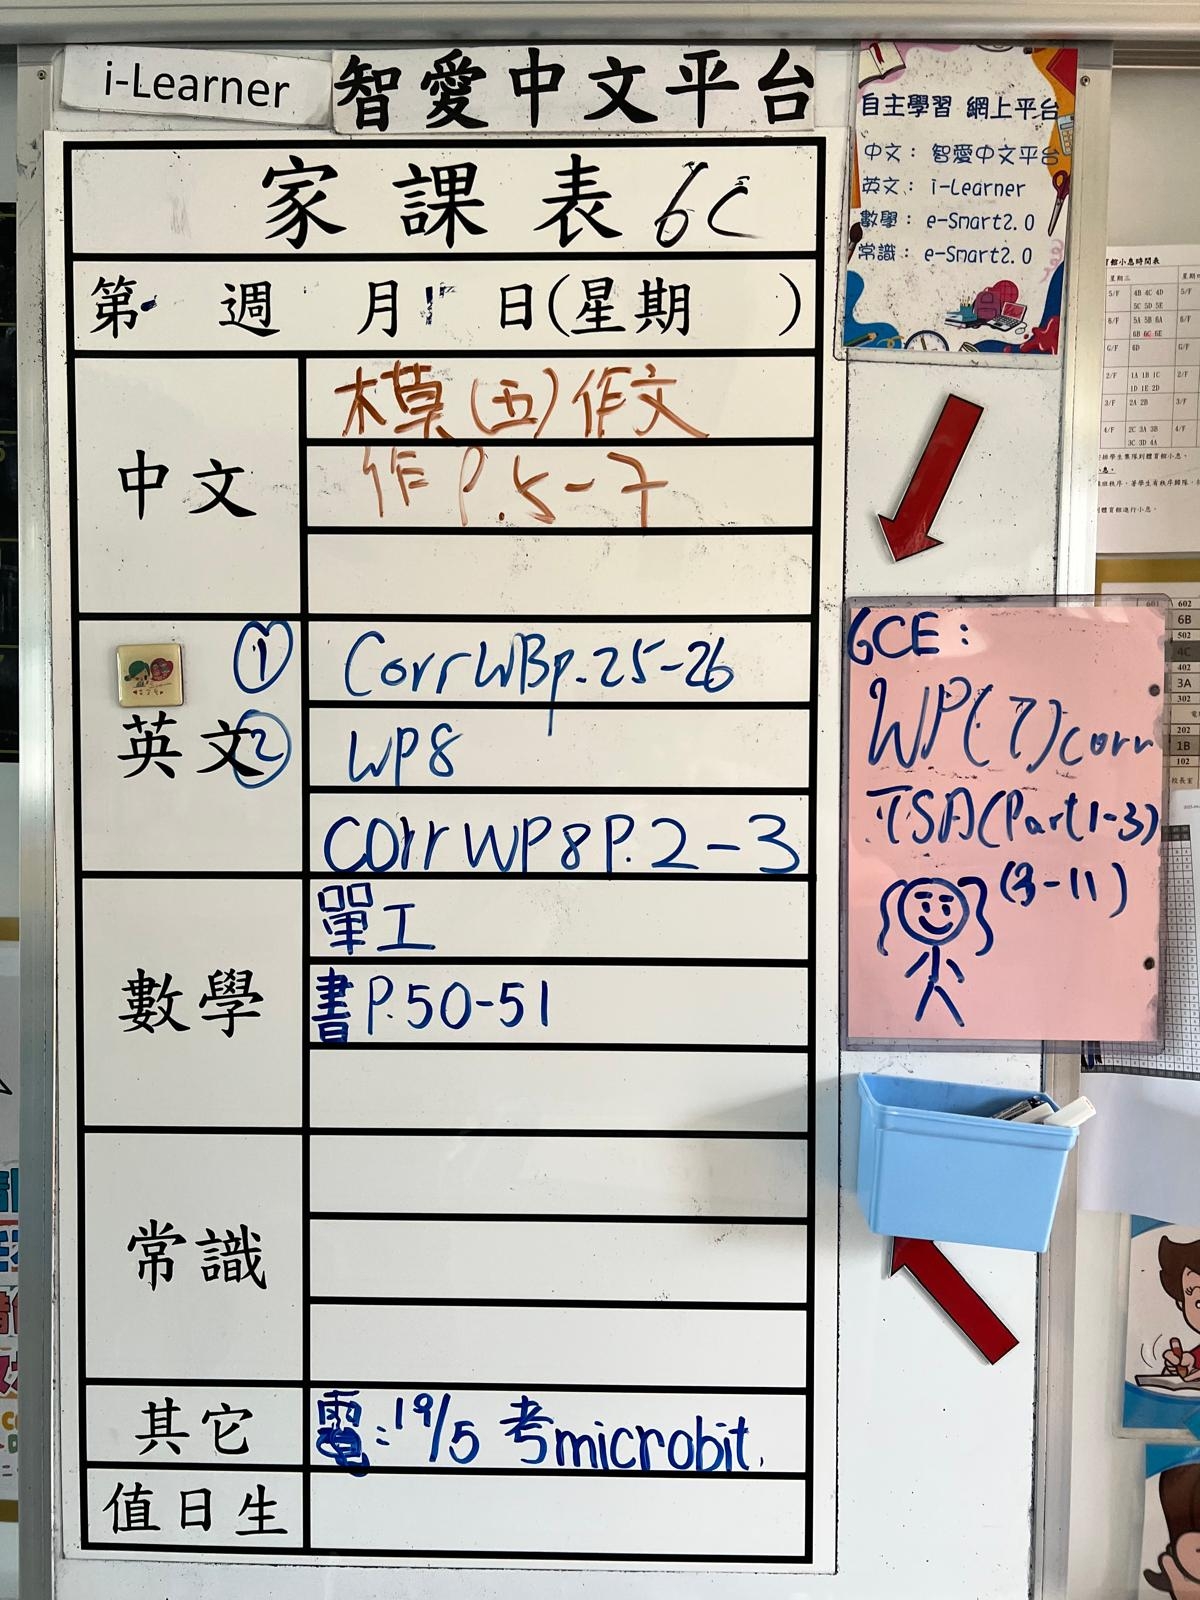 i-Learner
智愛中文平台
自主學習 網上平台
中文：智愛中文平台
英文：i-Learner
數學：e-Smart2.0
常識：e-Smart2.0
家課表 6C
第 週 月 日(星期 )
中文
模(五)作文
作P.5-7
英文
① Corr WB p.25-26
② WP8
Corr WP8 P.2-3
數學
單工
書P.50-51
常識
其它
電:19/5 考microbit.
值日生
6CE:
WP(7)corr
TSA(Part1-3)